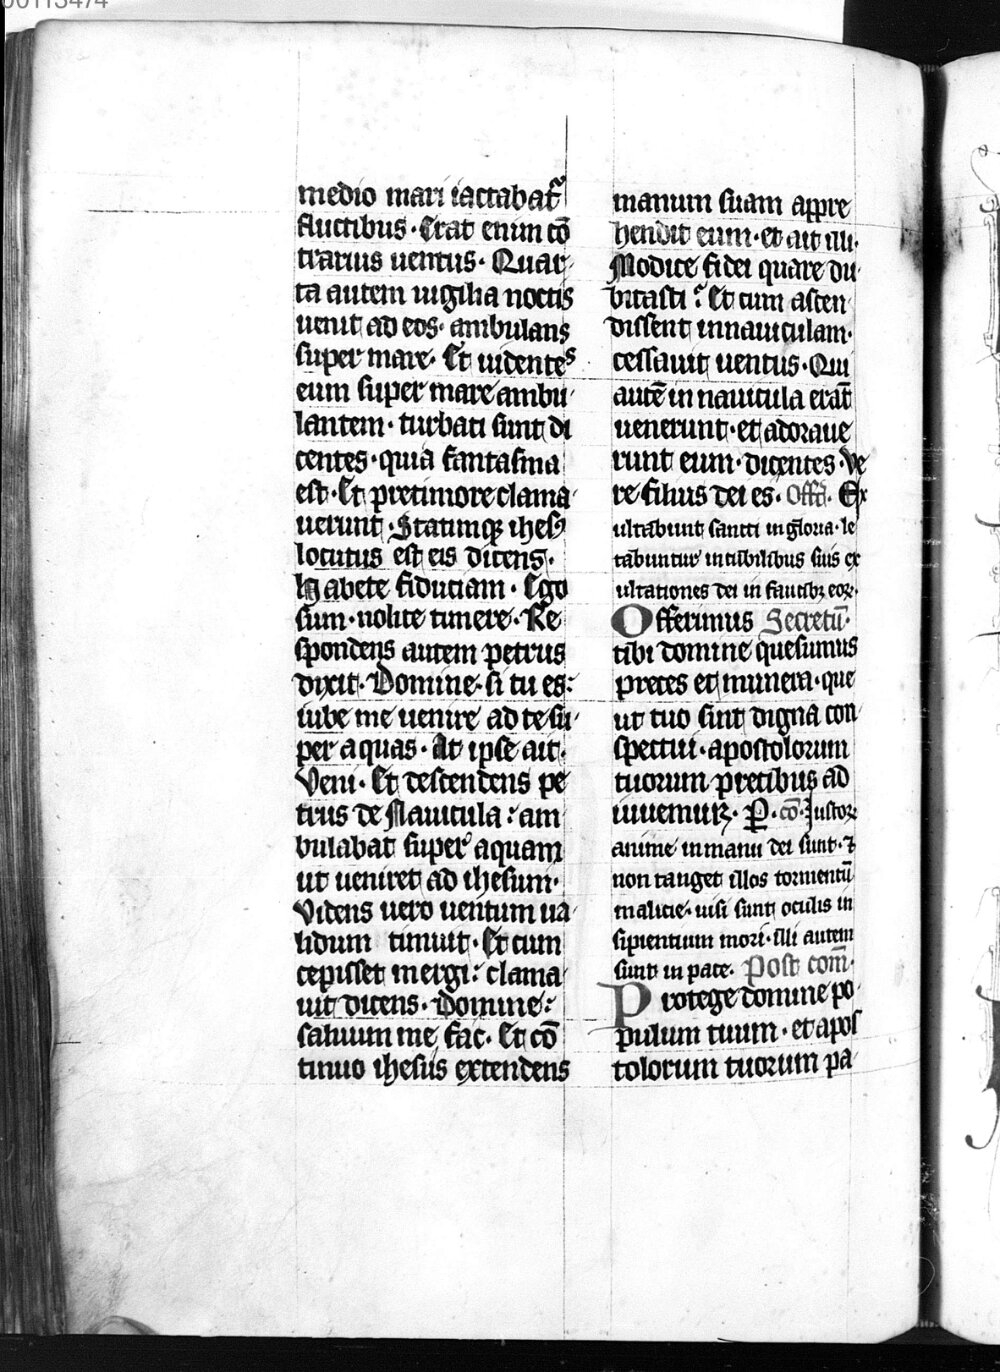 00113474
medio mari iactabat᷑
fluctibus · Erat enim cō
trarius uentus · Quar-
ta autem uigilia noctis
uenit ad eos · ambulans
super mare · Et uidentes
eum super mare ambu-
lantem · turbati sunt di
centes · quia fantasma
est · Et pretimore clama-
uerunt · Statimq; ihesꝰ
locutus est eis dicens ·
Habete fiduciam · Ego
sum · nolite timere · Re
spondens autem petrus
dixit · Domine · si tu es:
iube me uenire ad te su-
per aquas · At ipse ait ·
Veni · Et descendens pe
trus de Nauicula : am
bulabat super aquam
ut ueniret ad ihesum ·
Videns uero uentum ua-
lidum timuit · Et cum
cepisset mergi : clama-
uit dicens · Domine :
saluum me fac · Et cō
tinuo ihesus extendens
manum suam appre
hendit eum · et ait illi ·
Modice fidei quare du-
bitasti ? Et cum ascen-
dissent in nauiculam ·
cessauit uentus · Qui
autē in nauicula erāt
uenerunt · et adoraue
runt eum · dicentes · Ve
re filius dei es · Offā · Ex
ultabunt sancti in gloria · le
tabuntur in cubilibus suis ex
ultationes dei in faucibꝫ eoꝝ ·
Offerimus Secretū ·
tibi domine quesumus
preces et munera · que
ut tuo sint digna con-
spectui · apostolorum
tuorum precibus ad
iuuemur · P · cō · Iustoꝝ
anime in manu dei sunt · ⁊
non tanget illos tormentū
malicie · uisi sunt oculis in
sipientium mori · illi autem
sunt in pace · Post com̄ ·
Protege domine po-
pulum tuum · et apos
tolorum tuorum pa-